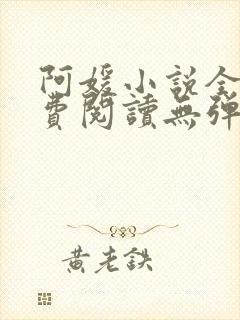 阿媛小説全
費閱讀無彈
黃老鉄